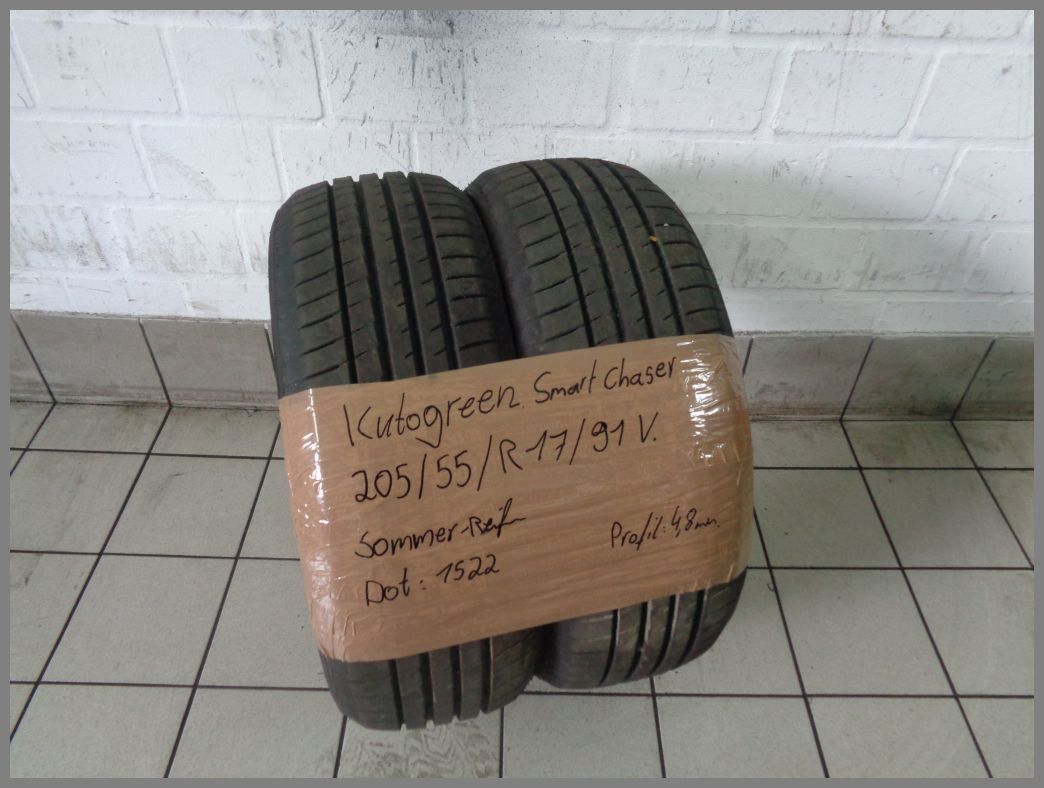 Kutogreen Smart Chaser
205/55/R-17/91 V.
Sommer-Reifen
Profil: 4,8 mm.
Dot: 1522